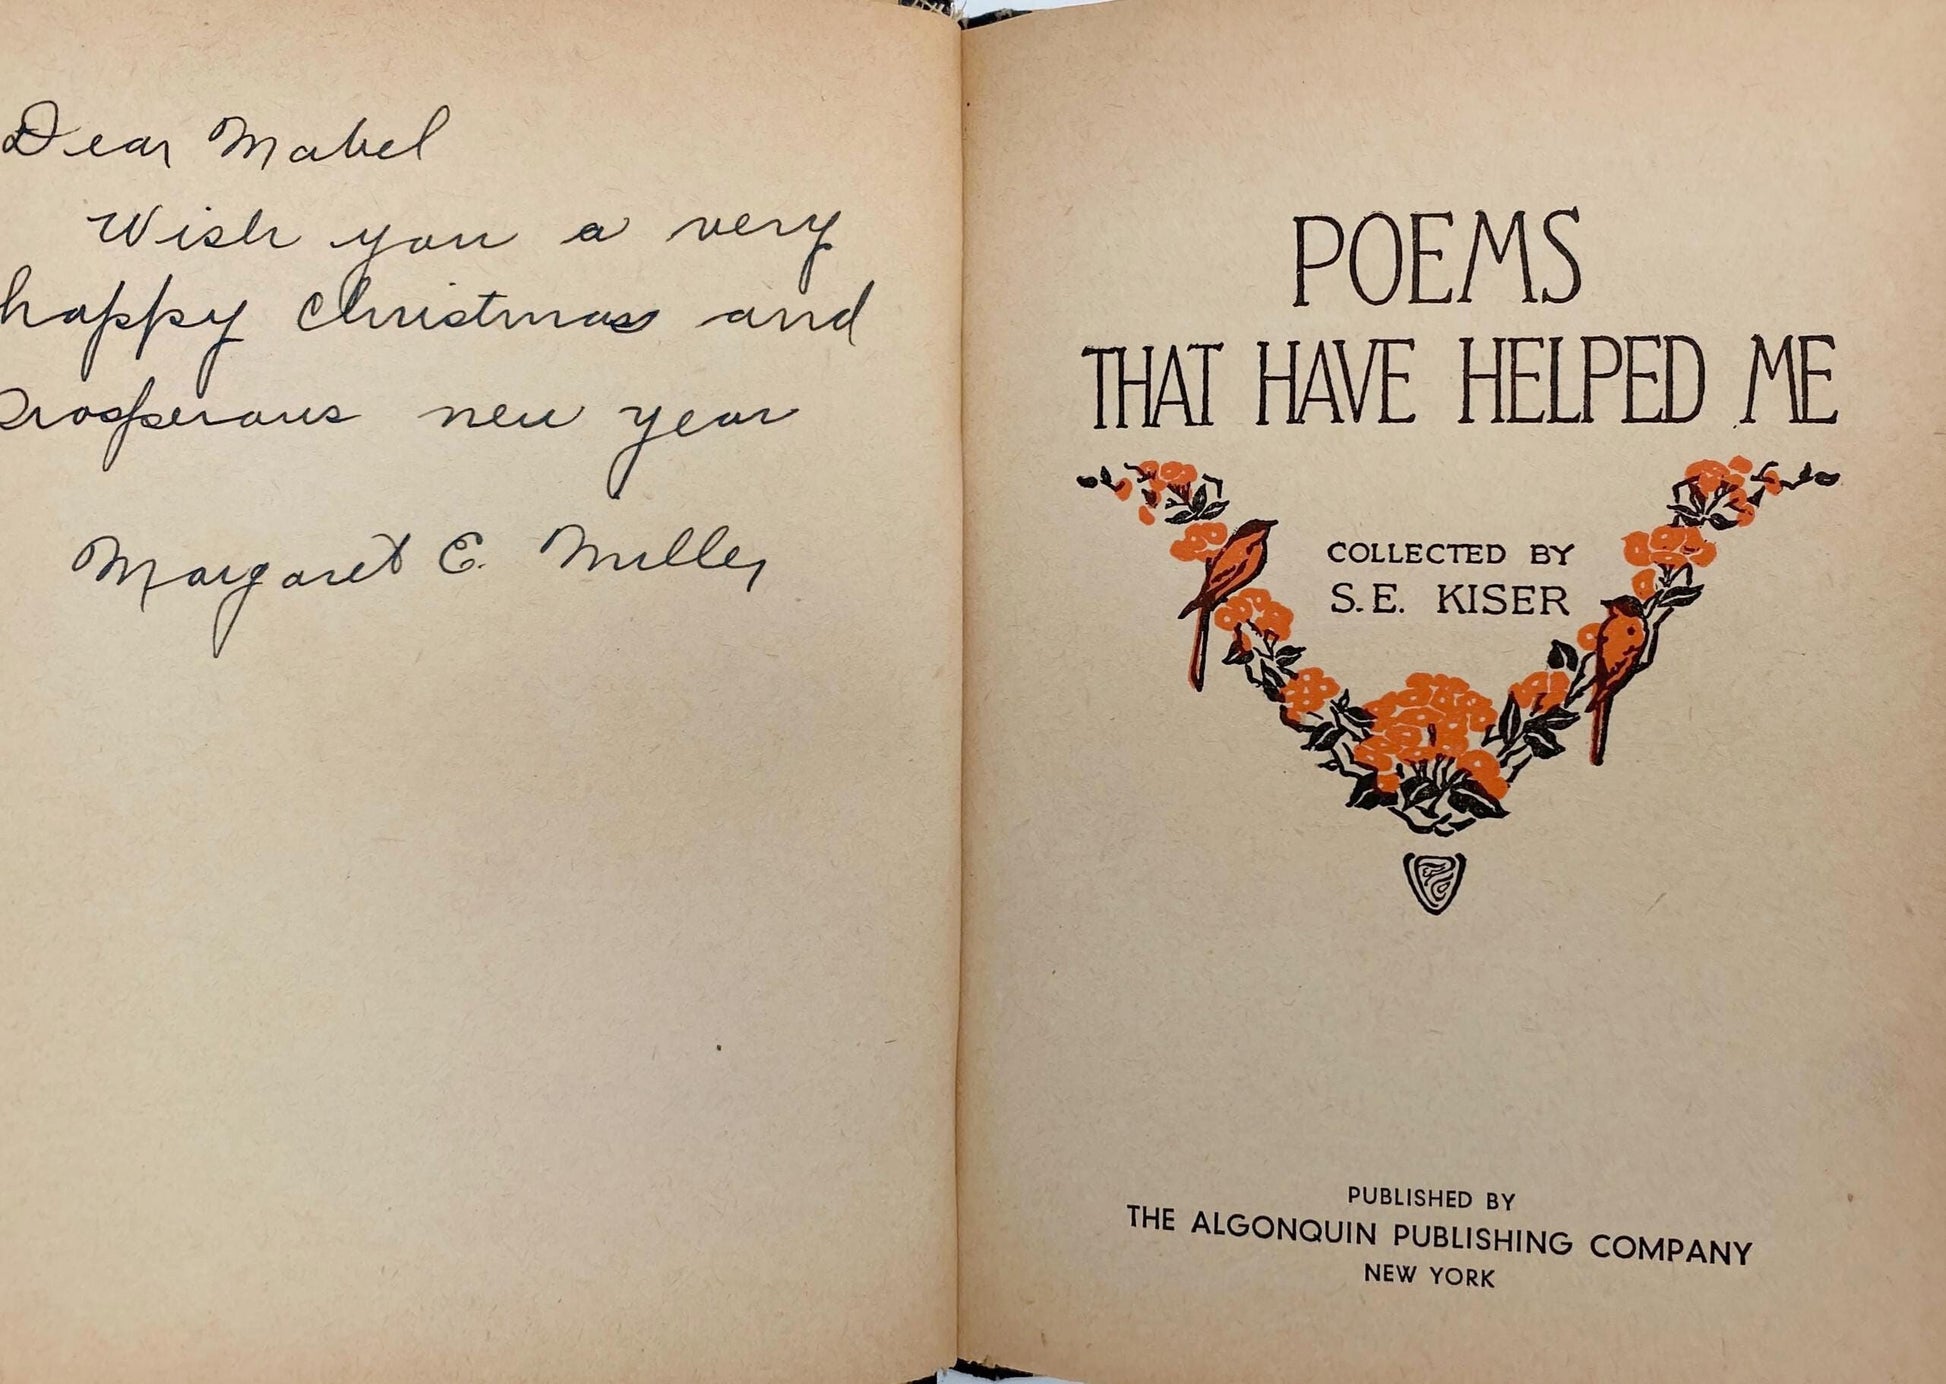 Dear Mabel
Wish you a very
happy Christmas and
Prosperous new year
Margaret E. Miller
POEMS
THAT HAVE HELPED ME
COLLECTED BY
S.E. KISER
PUBLISHED BY
THE ALGONQUIN PUBLISHING COMPANY
NEW YORK